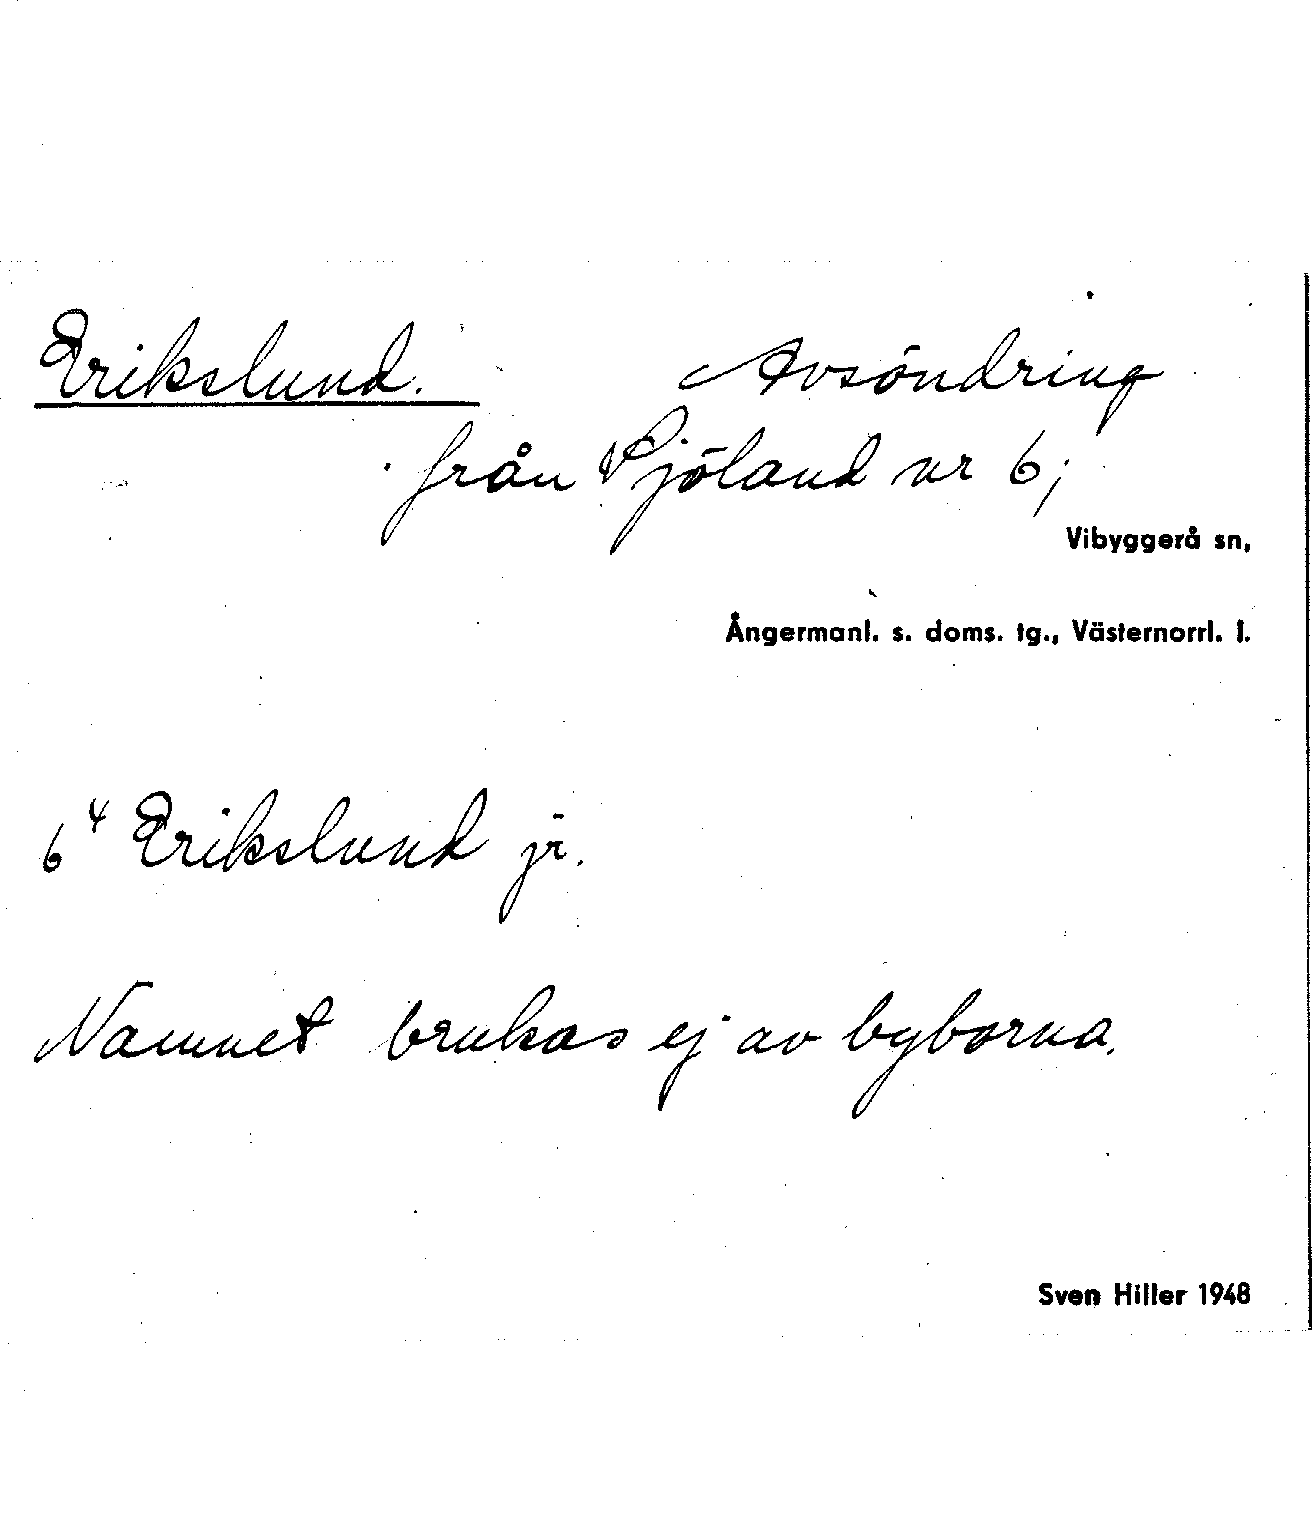 Erikslund. Avsöndring
från Sjöland nr 6;
Vibyggerå sn,
Ångermanl. s. doms. tg., Västernorrl. l.
6⁴ Erikslund jr.
Namnet brukas ej av byborna.
Sven Hiller 1948